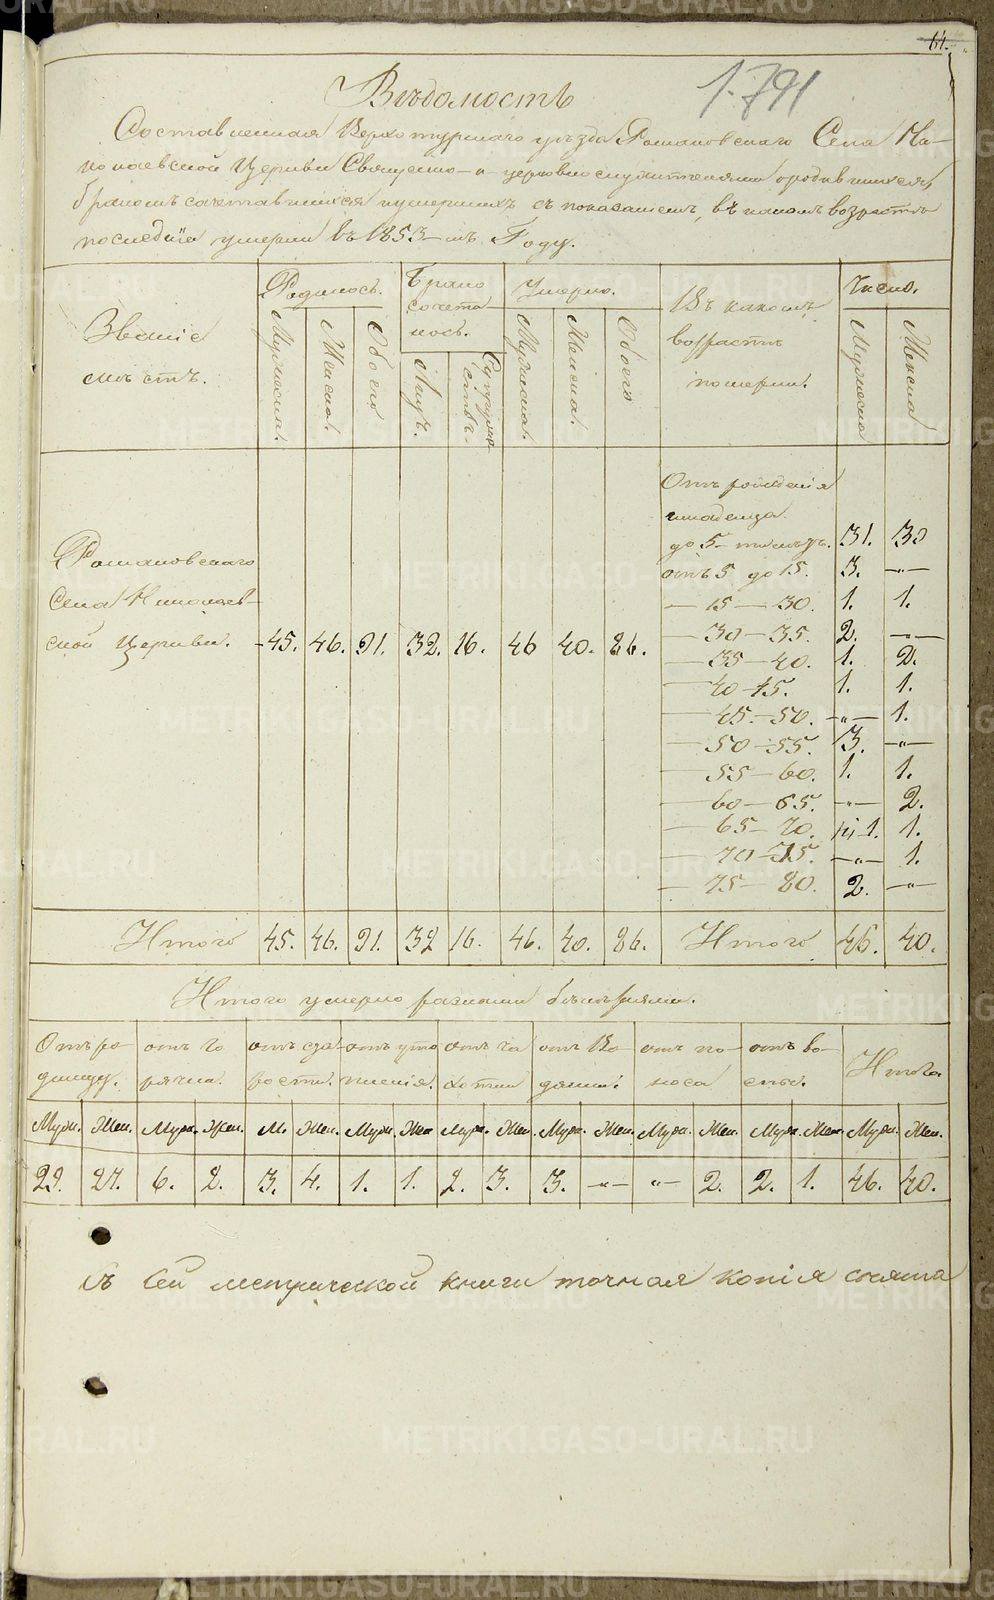 64.
1.791
Вѣдомость
Составленная Верхотурскаго уѣзда Романовскаго Села Ни-
колаевской Церкви Священно-и-церковнослужителями о родившихся,
бракомъ сочетавшихся и умершихъ съ показаніемъ, въ какомъ возрастѣ
послѣдніе умерли въ 1853-мъ Году.
Званіе мѣстъ.
Родилось.
Мужеска.
Женска.
Обоего
Брако сочета лось.
Лицъ.
Супруже ствъ.
Умерло.
Мужеска.
Женска.
Обоего
Въ какомъ возрастѣ померли.
Число.
Мужеска
Женска
Романовскаго
Села Николаев-
ской Церкви. 45. 46. 91. 32. 16. 46 40. 86.
Отъ рожденія
младенца
до 5-ти лѣтъ. 31. 30
отъ 5 до 15. 3. -"-
— 15 — 30. 1. 1.
— 30 — 35. 2. -"-
— 35 — 40. 1. 2.
— 40 — 45. 1. 1.
— 45. — 50. -"- 1.
— 50 — 55. 3. -"-
— 55 — 60. 1. 1.
— 60 — 65. -"- 2.
— 65 — 70. 1. 1.
— 70 — 75. -"- 1.
— 75 — 80. 2. -"-
Итого 45. 46. 91. 32 16. 46. 40. 86. Итого 46. 40.
Итого умерло разными болѣзнями.
Отъ ро димцу.
отъ го рячки.
отъ ста рости.
отъ уто пленія.
отъ ча хотки
отъ Во дянки.
отъ по носа
отъ во спы.
Итого
Муж. Жен. Муж. Жен. М. Жен. Муж. Жен Муж. Жен. Муж. Жен. Муж. Жен. Муж. Жен. Муж. Жен.
29. 27. 6. 2. 3. 4. 1. 1. 2. 3. 3. -"- -"- 2. 2. 1. 46. 40.
Съ сей метрической книги точная копія снята
METRIKI.GASO-URAL.RU